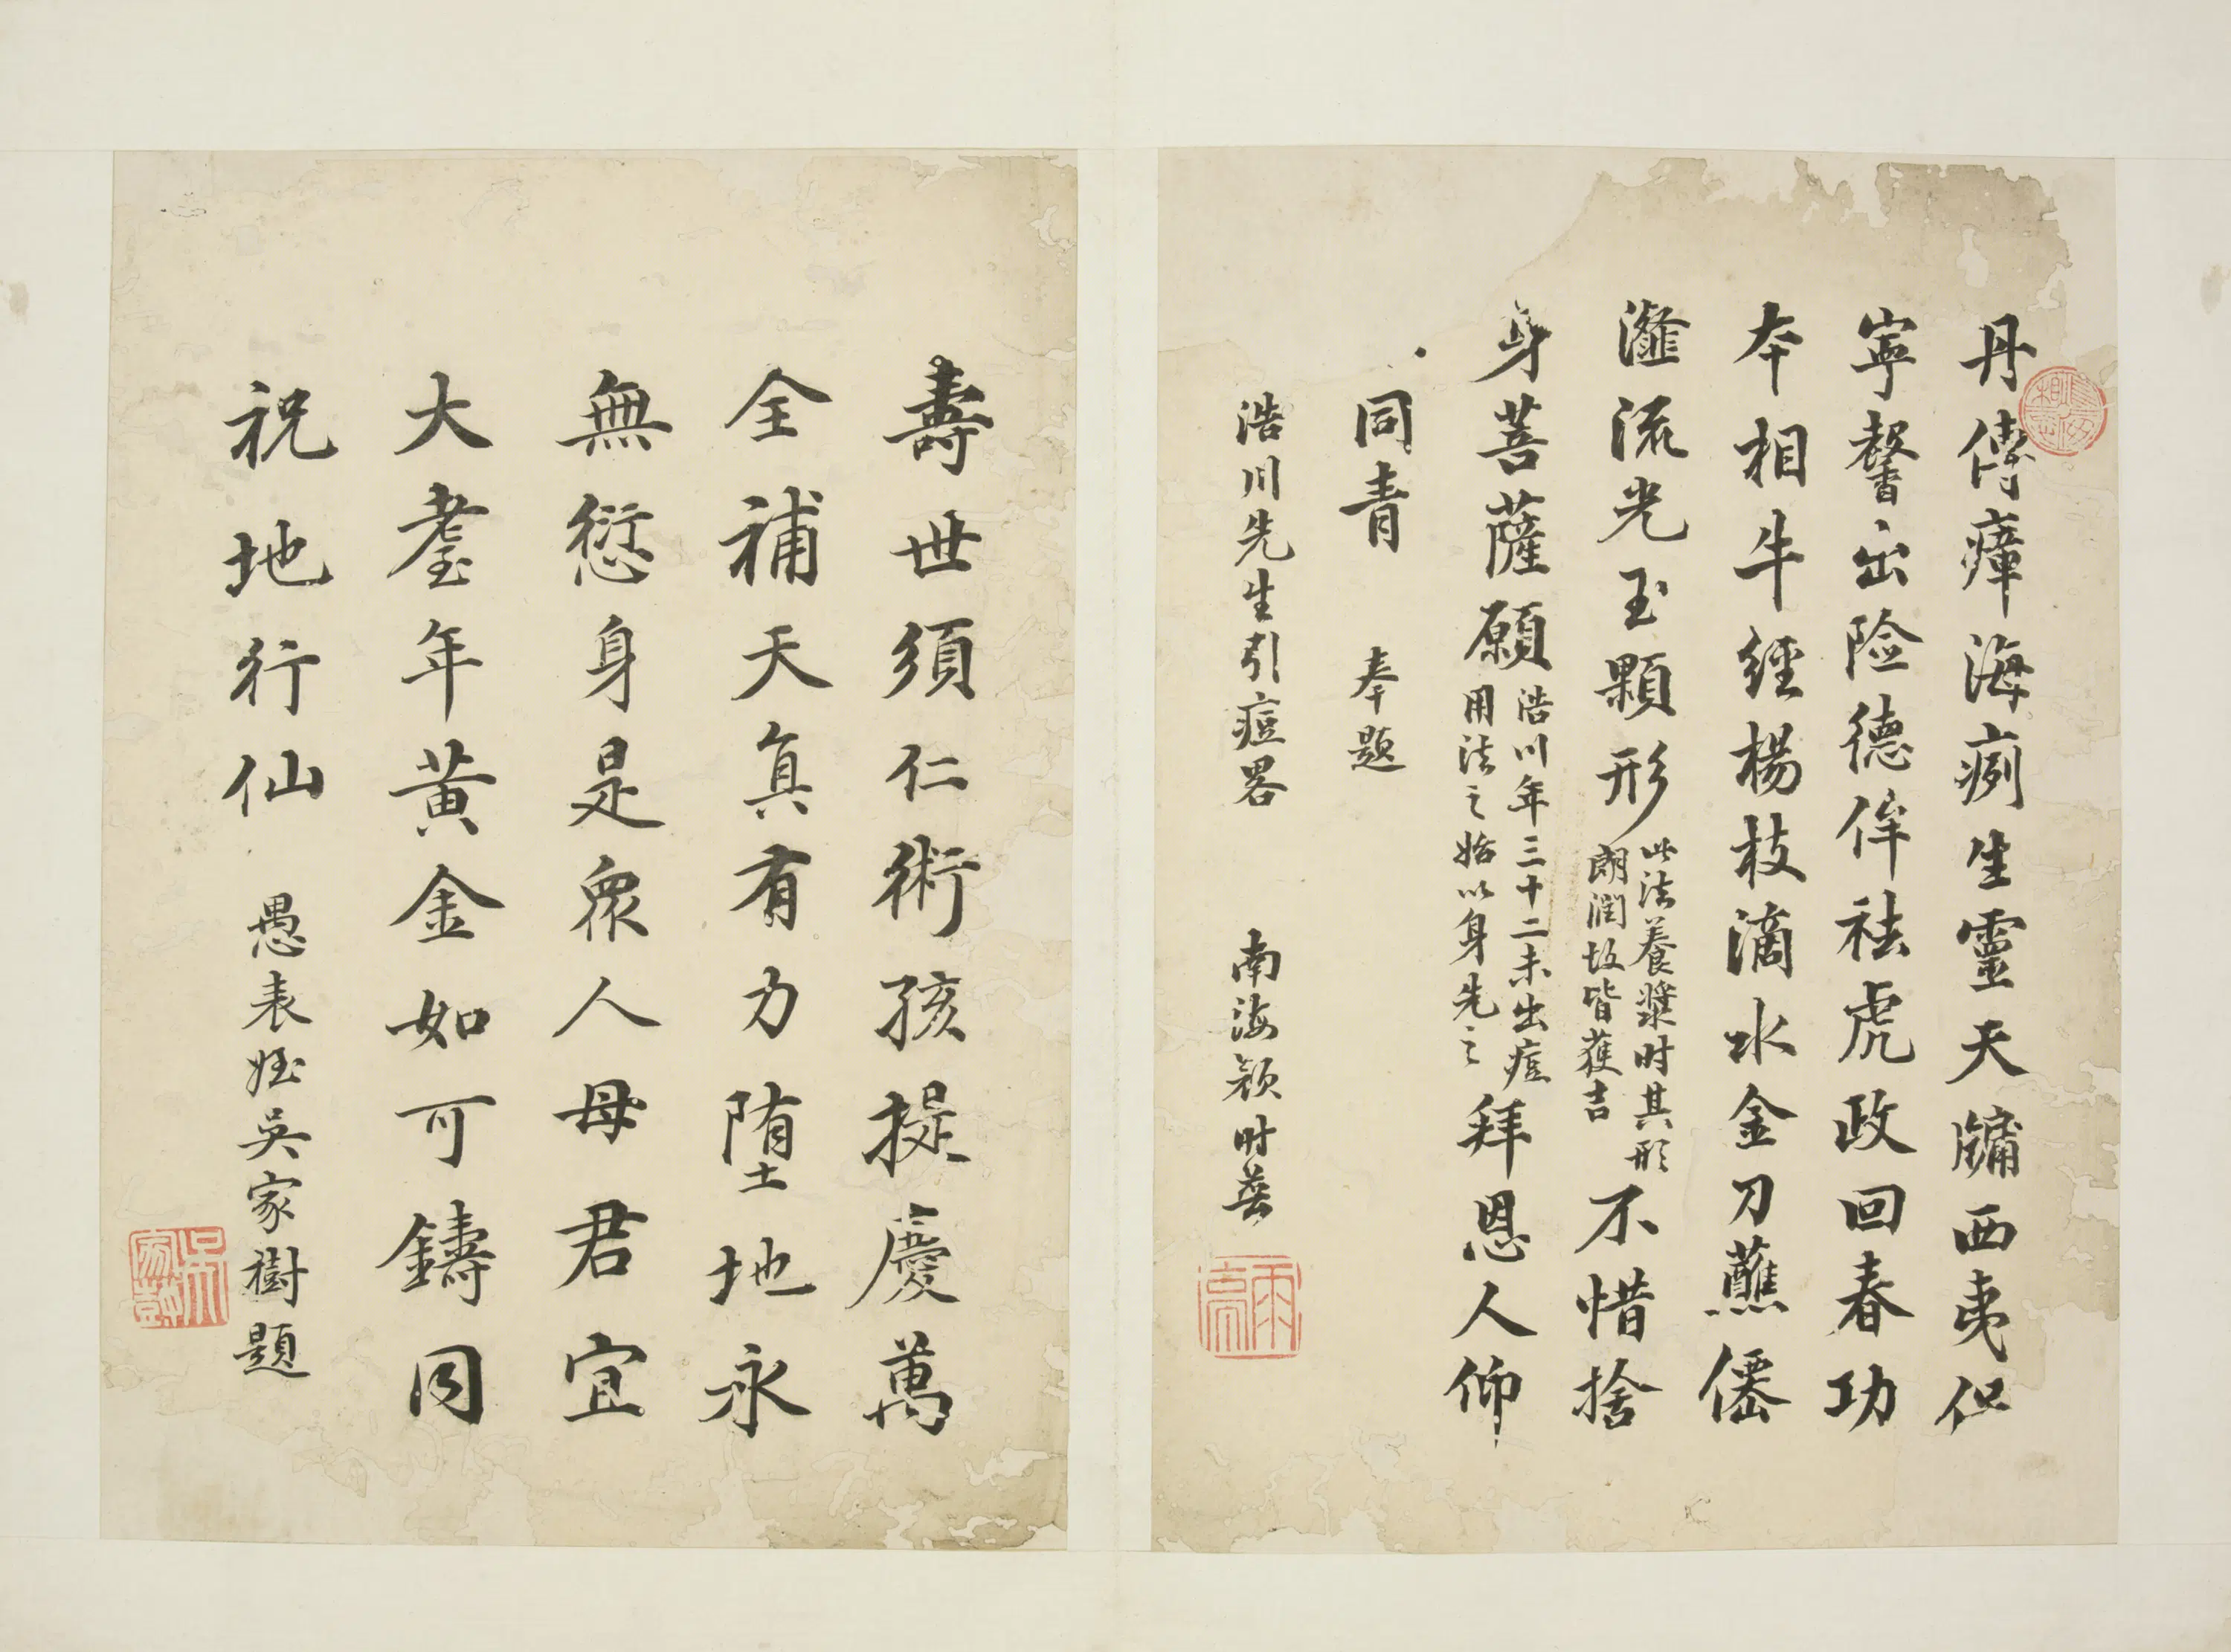 丹傳瘴海痾生靈天牖西夷佀
寧馨出險德侔祛虎政回春功
夲相牛經楊枝滴水金刀蘸僊
灕流光玉顆形此法養漿时其形
朗潤故皆獲吉不惜捨
身菩薩願浩川年三十二未出痘
用法之始以身先之拜恩人仰
同青 奉題
浩川先生引痘畧 南海顏时普
壽世須仁術孩提慶萬
全補天真有力墮地永
無愆身是眾人母君宜
大耋年黃金如可鑄同
祝地行仙 愚表姪吳家樹題
吳家樹